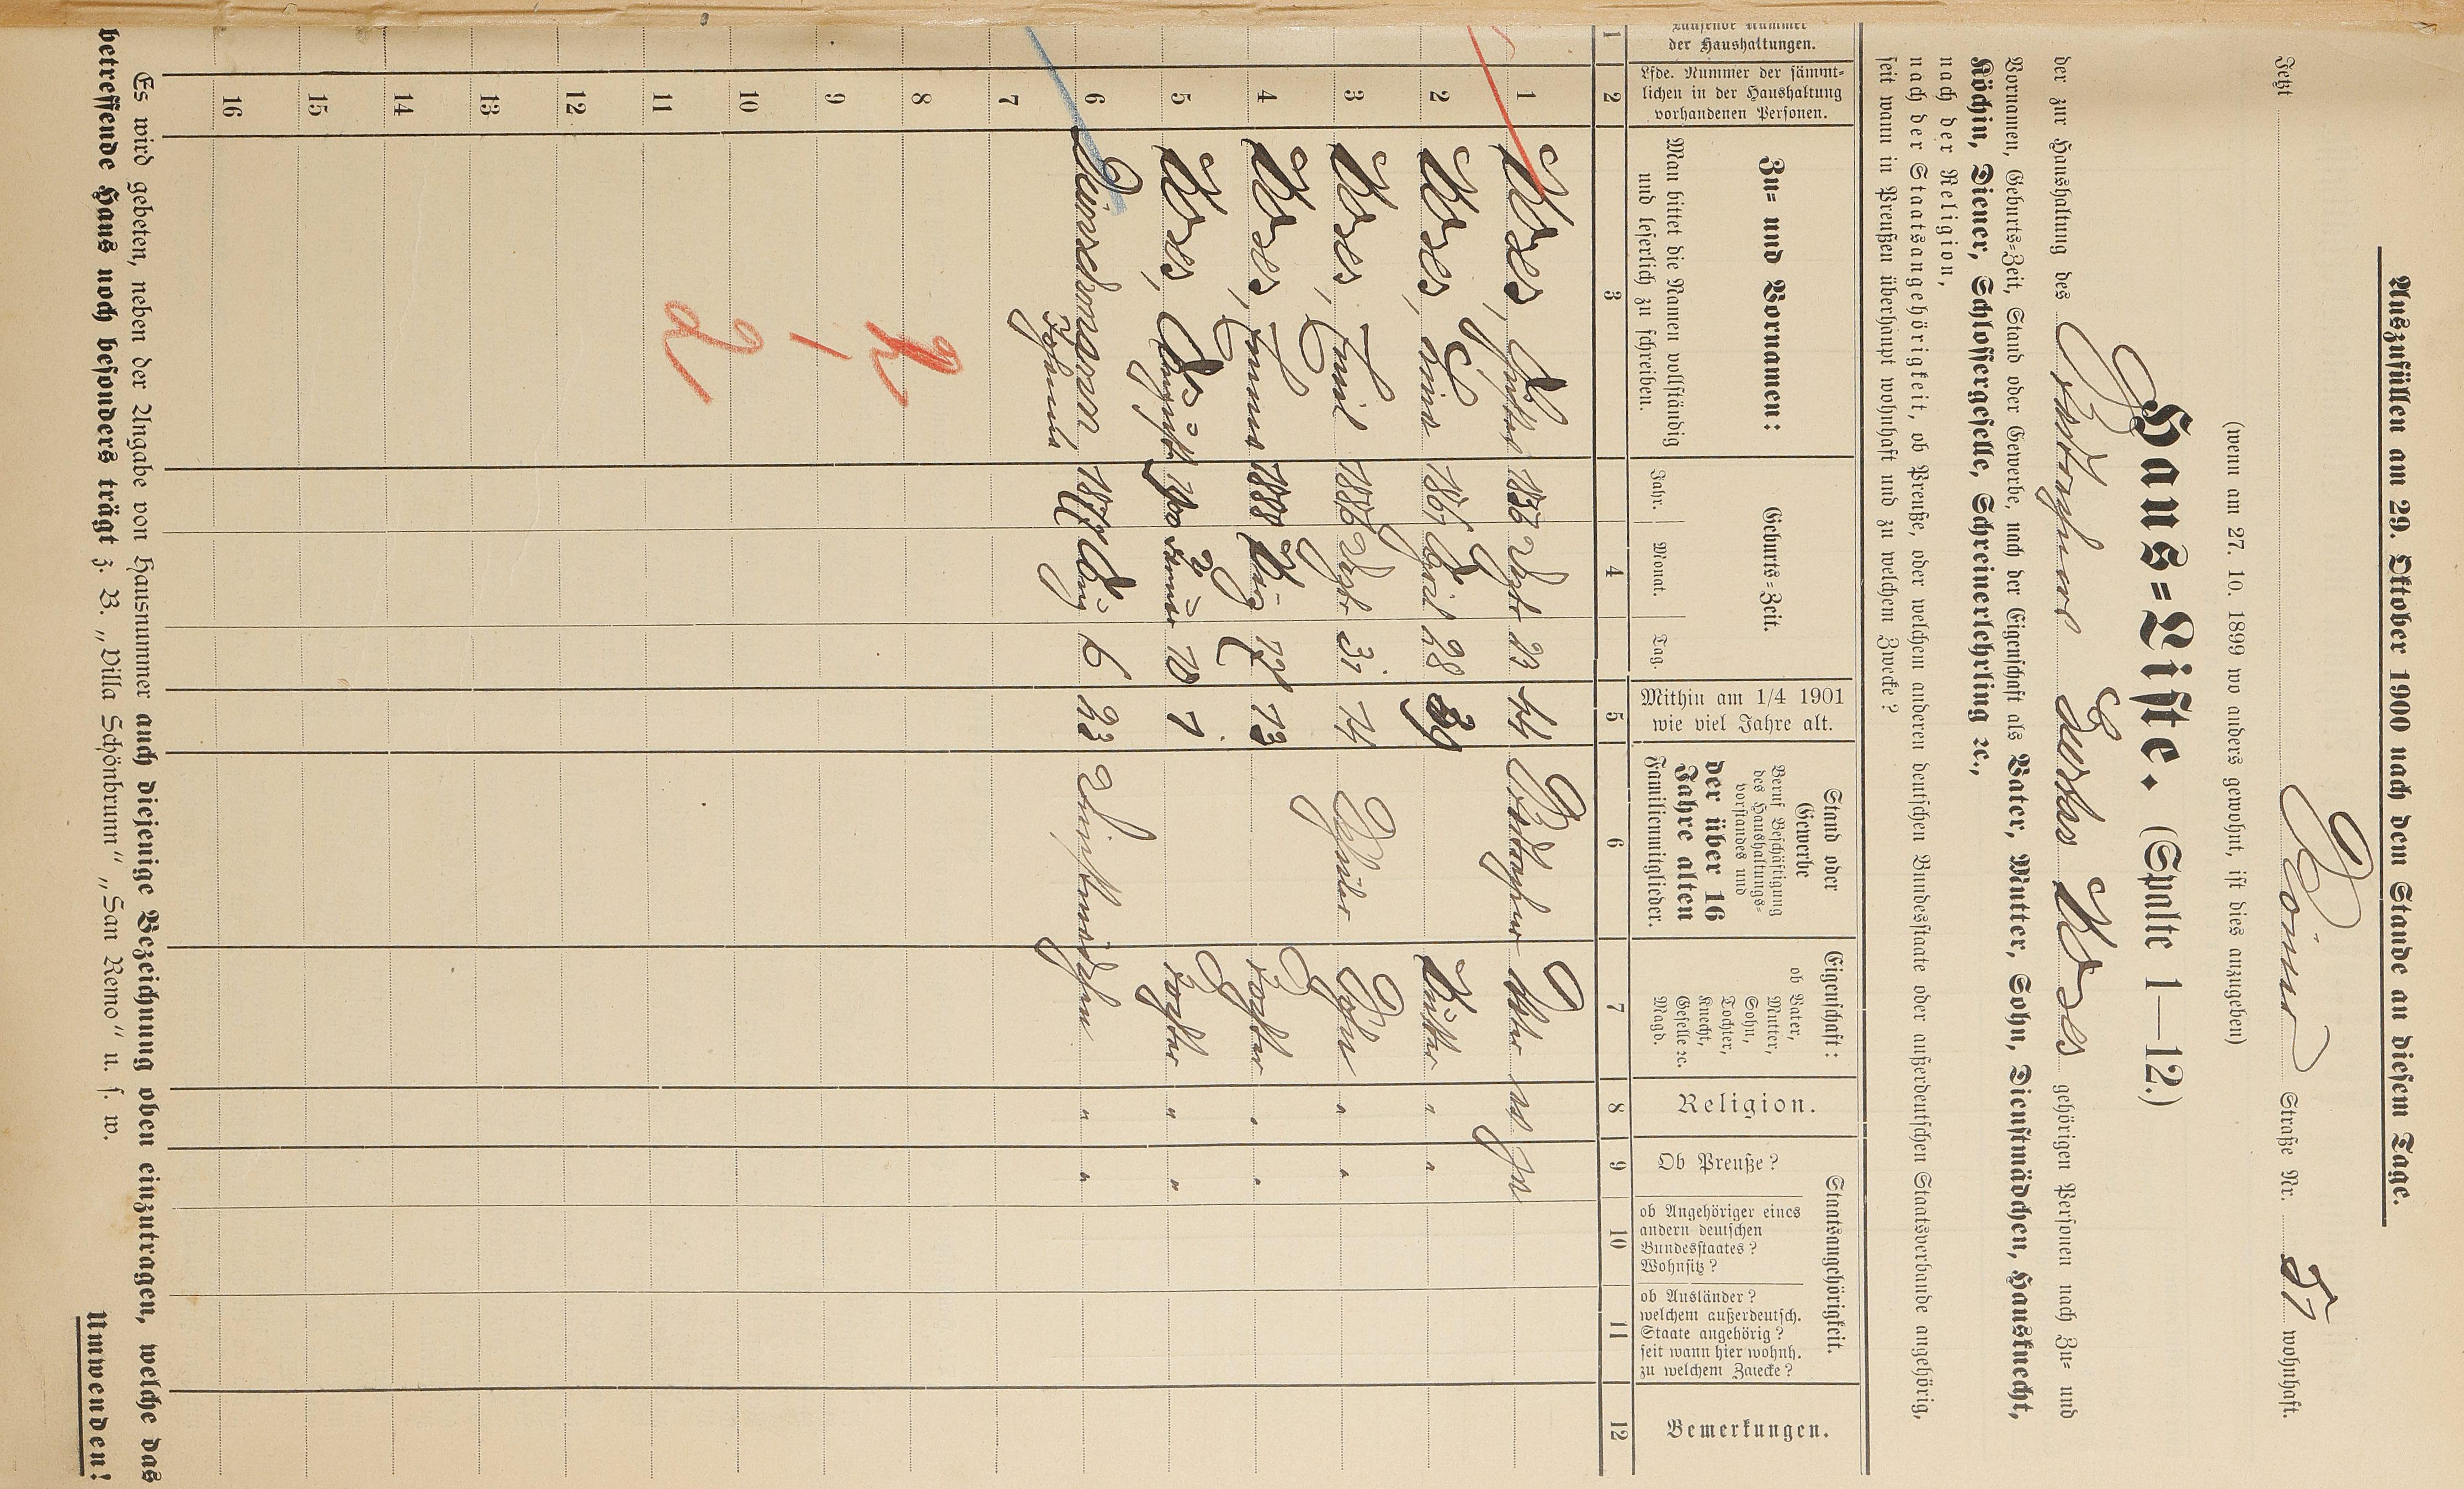 Auszufüllen am 29. Oktober 1900 nach dem Stande an diesem Tage.
Jetzt Straße Nr. 51 wohnhaft.
(wenn am 27. 10. 1899 wo anders gewohnt, ist dies anzugeben)
Haus=Liste. (Spalte 1—12.)
der zur Haushaltung des gehörigen Personen nach Zu= und
Vornamen, Geburts=Zeit, Stand oder Gewerbe, nach der Eigenschaft als Vater, Mutter, Sohn, Dienstmädchen, Hausknecht,
Köchin, Diener, Schlossergeselle, Schreinerlehrling ꝛc.,
nach der Religion,
nach der Staatsangehörigkeit, ob Preuße, oder welchem anderen deutschen Bundesstaate oder außerdeutschen Staatsverbande angehörig,
seit wann in Preußen überhaupt wohnhaft und zu welchem Zwecke?
Laufende Nummer
der Haushaltungen.
Lfde. Nummer der sämmt=
lichen in der Haushaltung
vorhandenen Personen.
Zu= und Vornamen:
Man bittet die Namen vollständig
und leserlich zu schreiben.
Geburts=Zeit.
Jahr. Monat. Tag.
Mithin am 1/4 1901
wie viel Jahre alt.
Stand oder
Gewerbe
Beruf Beschäftigung
des Haushaltungs=
vorstandes und
der über 16
Jahre alten
Familienmitglieder.
Eigenschaft:
ob Vater,
Mutter,
Sohn,
Tochter,
Knecht,
Geselle ꝛc.
Magd.
Religion.
Staatsangehörigkeit.
Ob Preuße?
ob Angehöriger eines
andern deutschen
Bundesstaates?
Wohnsitz?
ob Ausländer?
welchem außerdeutsch.
Staate angehörig?
seit wann hier wohnh.
zu welchem Zwecke?
Bemerkungen.
1 2 3 4 5 6 7 8 9 10 11 12
1 1856 23 44 Vater
2 1861 April 28 39 Mutter " "
3 Emil 1886 31 14 Schüler Sohn " "
4 Emma 1888 13 Tochter " "
5 1900 10 1 Tochter " "
6 1877 Aug 6 23 Dienstmädchen " "
Johanna
7
8
9
10
11
12
13
14
15
16
2
1
2
Es wird gebeten, neben der Angabe von Hausnummer auch diejenige Bezeichnung oben einzutragen, welche das
betreffende Haus noch besonders trägt z. B. „Villa Schönbrunn“ „San Remo“ u. s. w.
Umwenden!